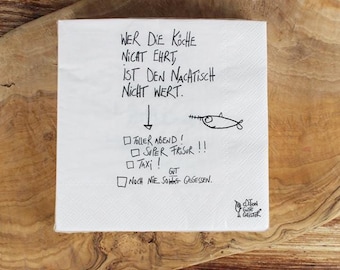 WER DIE KÖCHE
NICHT EHRT,
IST DEN NACHTISCH
NICHT WERT.
TOLLER ABEND!
SUPER FRISUR!!
TAXI!
GUT
NOCH NIE SO GEGESSEN.
EDITION
GUTE
GEISTER